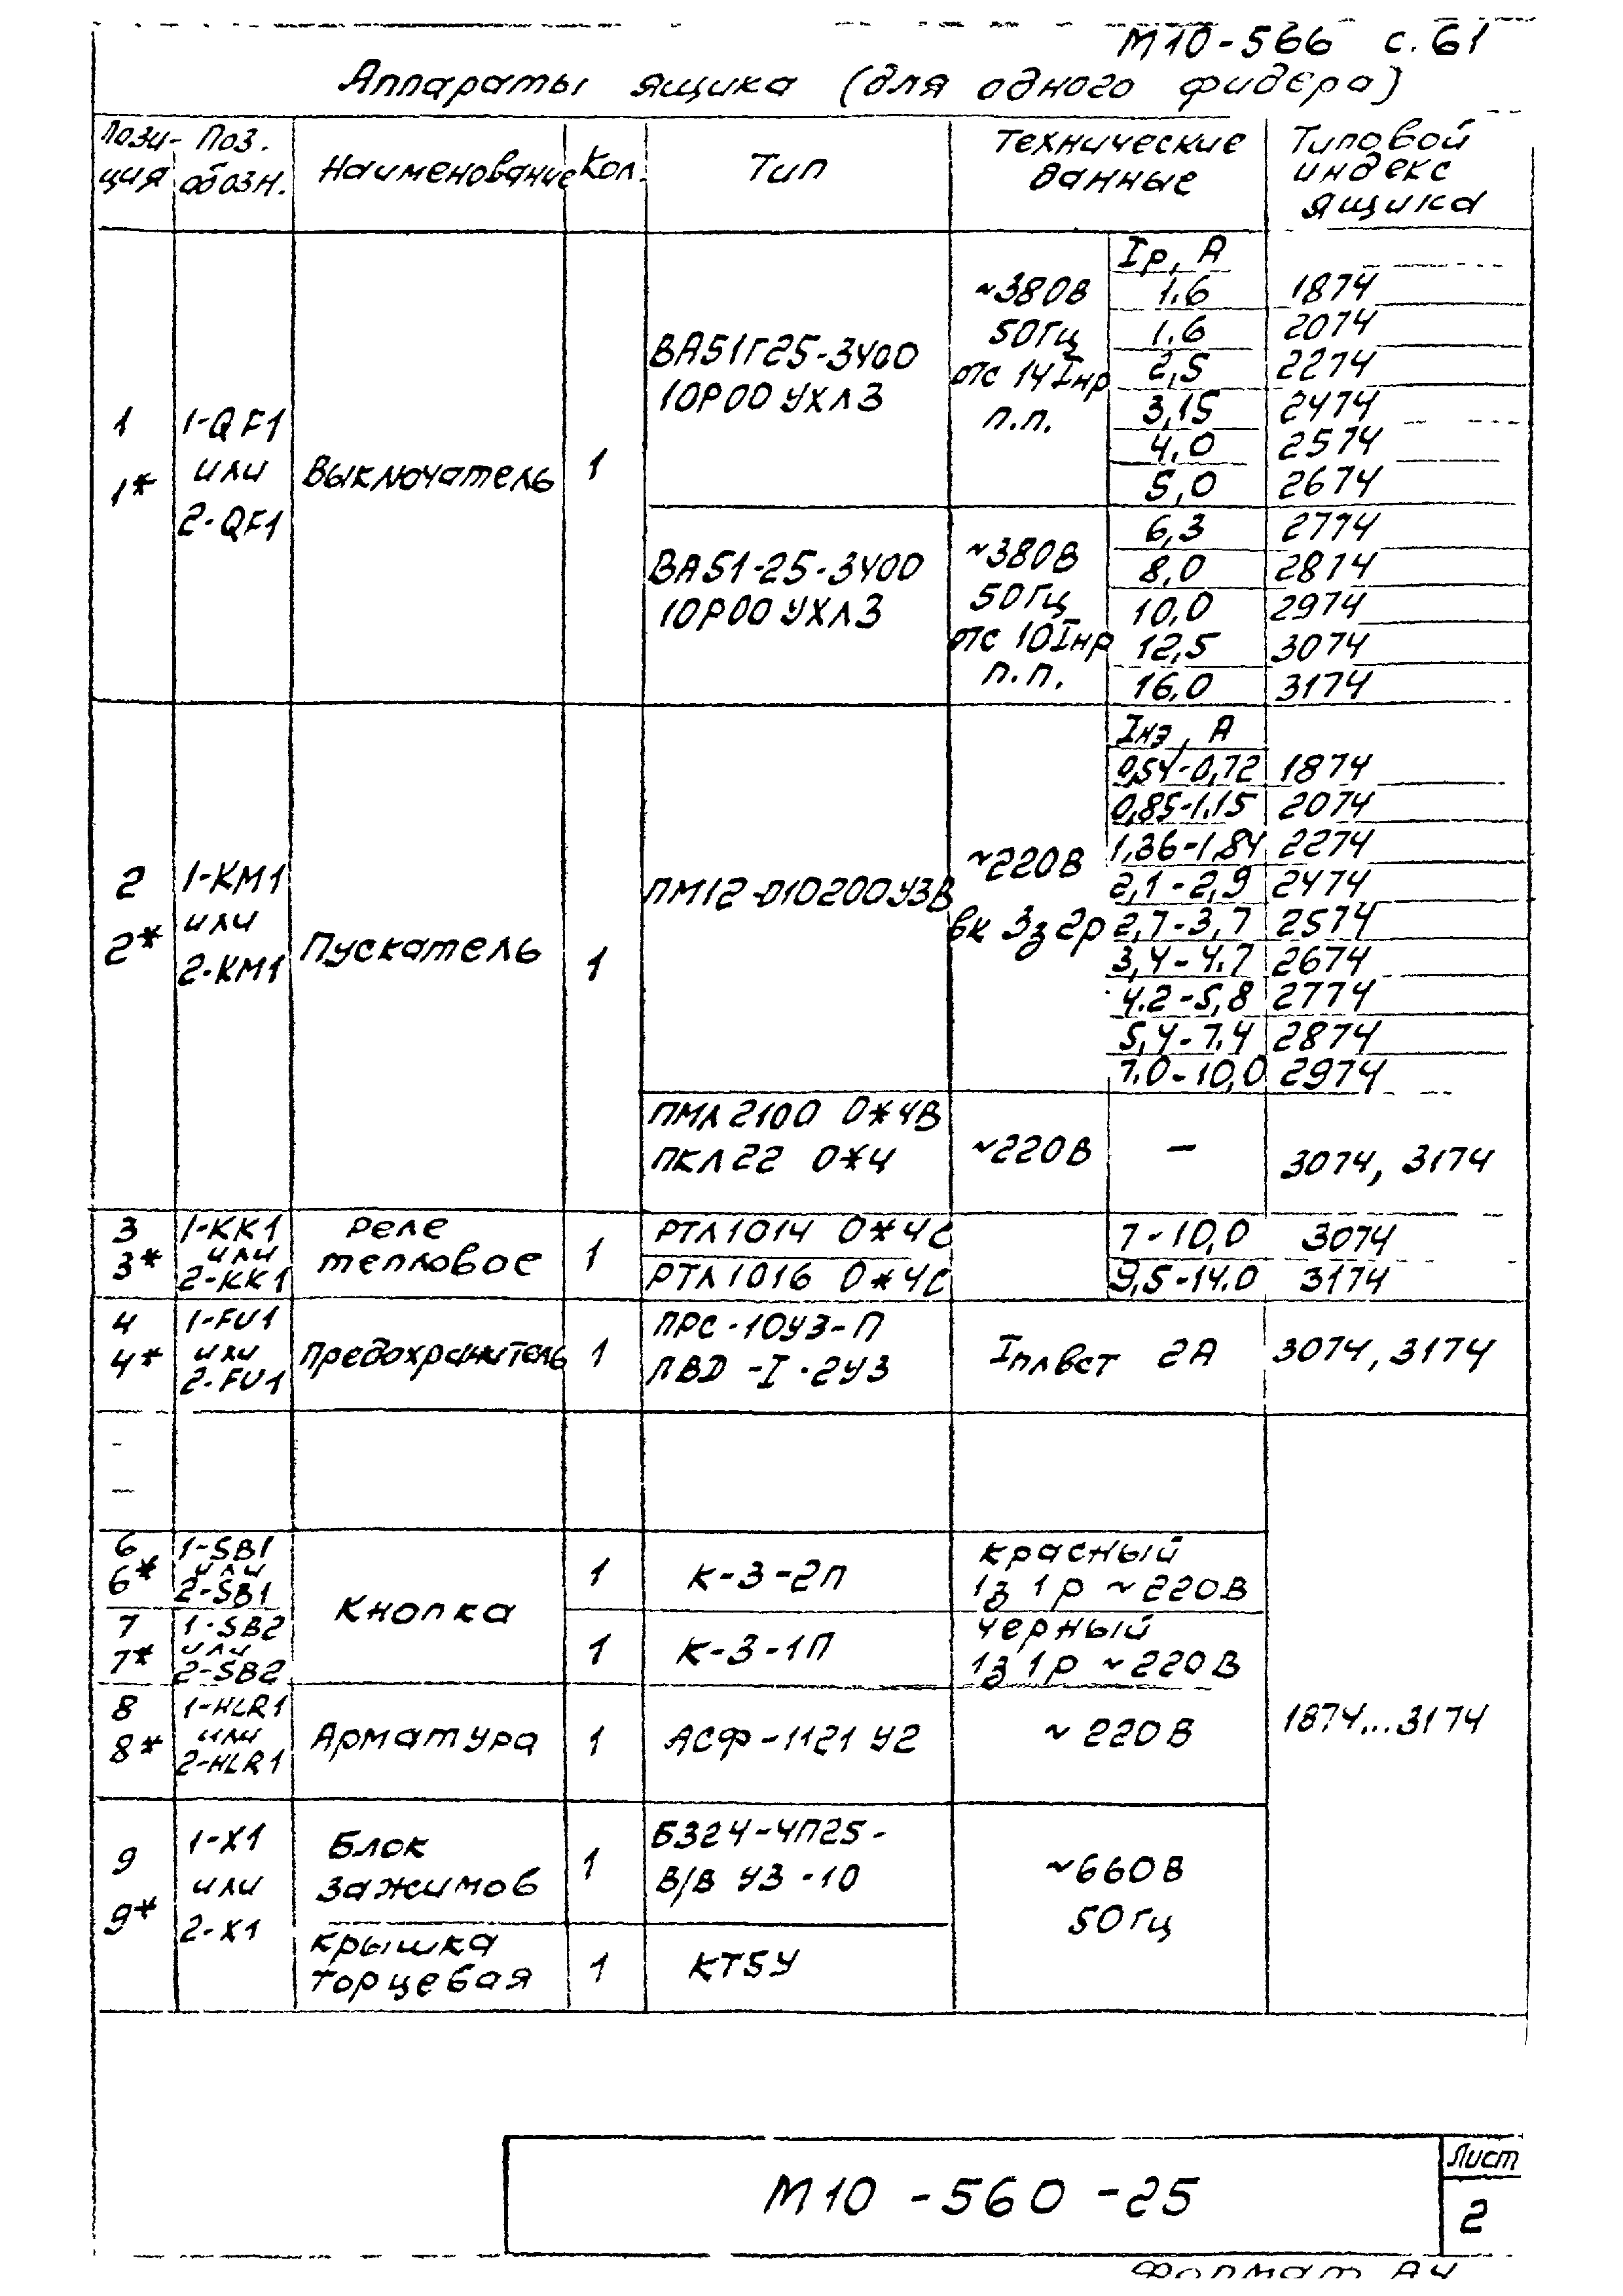 М10-566 с. 61
Аппараты ящика (для одного фидера)
Пози-ция Поз. обозн. Наименование Кол. Тип Технические данные Типовой индекс ящика
1 1* 1-QF1 или 2-QF1 Выключатель 1
ВА51Г25-3400 10Р00 УХЛ3
~380В 50Гц отс 14Iнр п.п.
Iр, А
1.6 1874
1.6 2074
2,5 2274
3,15 2474
4,0 2574
5,0 2674
ВА51-25-3400 10Р00 УХЛ3
~380В 50Гц отс 10Iнр п.п.
6,3 2774
8,0 2874
10,0 2974
12,5 3074
16,0 3174
2 2* 1-КМ1 или 2-КМ1 Пускатель 1
ПМ12-010200У3В
~220В вк 3з 2р
Iнэ, А
0,54-0,72 1874
0,85-1.15 2074
1,36-1,84 2274
2,1-2,9 2474
2,7-3,7 2574
3,4-4.7 2674
4.2-5,8 2774
5,4-7.4 2874
7.0-10,0 2974
ПМЛ 2100 О*4В
ПКЛ 22 О*4
~220В – 3074, 3174
3 3* 1-КК1 или 2-КК1 Реле тепловое 1
РТЛ 1014 О*4С 7-10,0 3074
РТЛ 1016 О*4С 9,5-14.0 3174
4 4* 1-FU1 или 2-FU1 Предохранитель 1
ПРС-10У3-П
ПВD-I-2У3
Iпл.вст 2А 3074, 3174
-
–
6 6* 1-SB1 или 2-SB1 Кнопка 1 К-3-2П красный 1з 1р ~220В
7 7* 1-SB2 или 2-SB2 1 К-3-1П черный 1з 1р ~220В
8 8* 1-HLR1 или 2-HLR1 Арматура 1 АСФ-1121 У2 ~220В
1874...3174
9 9* 1-Х1 или 2-Х1 Блок зажимов 1
Б324-4П25-
В/В У3-10
~660В 50Гц
крышка торцевая 1 КТ5У
М10-560-25
Лист
2
Формат А4